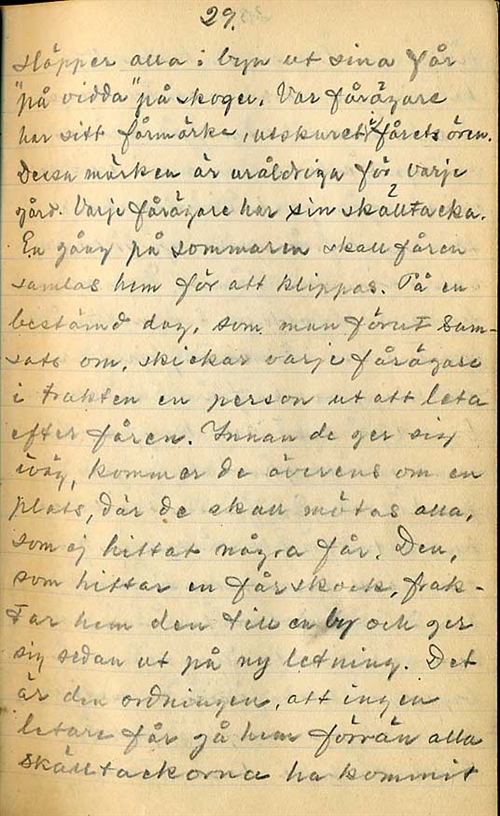 29.
släpper alla i byn ut sina får
"på vidda" på skogen. Var fårägare
har sitt fårmärke, utskuret i fårets öron.
Dessa märken är uråldriga för varje
gård. Varje fårägare har sin skälltacka.
En gång på sommaren skall fåren
samlas hem för att klippas. På en
bestämd dag, som man förut sam-
sats om, skickar varje fårägare
i trakten en person ut att leta
efter fåren. Innan de ger sig
iväg, kommer de överens om en
plats, där de skall mötas alla,
som ej hittat några får. Den,
som hittar en fårskock, frak-
tar hem den till en by och ger
sig sedan ut på ny letning. Det
är den ordningen, att ingen
letare får gå hem förrän alla
skälltackorna ha kommit